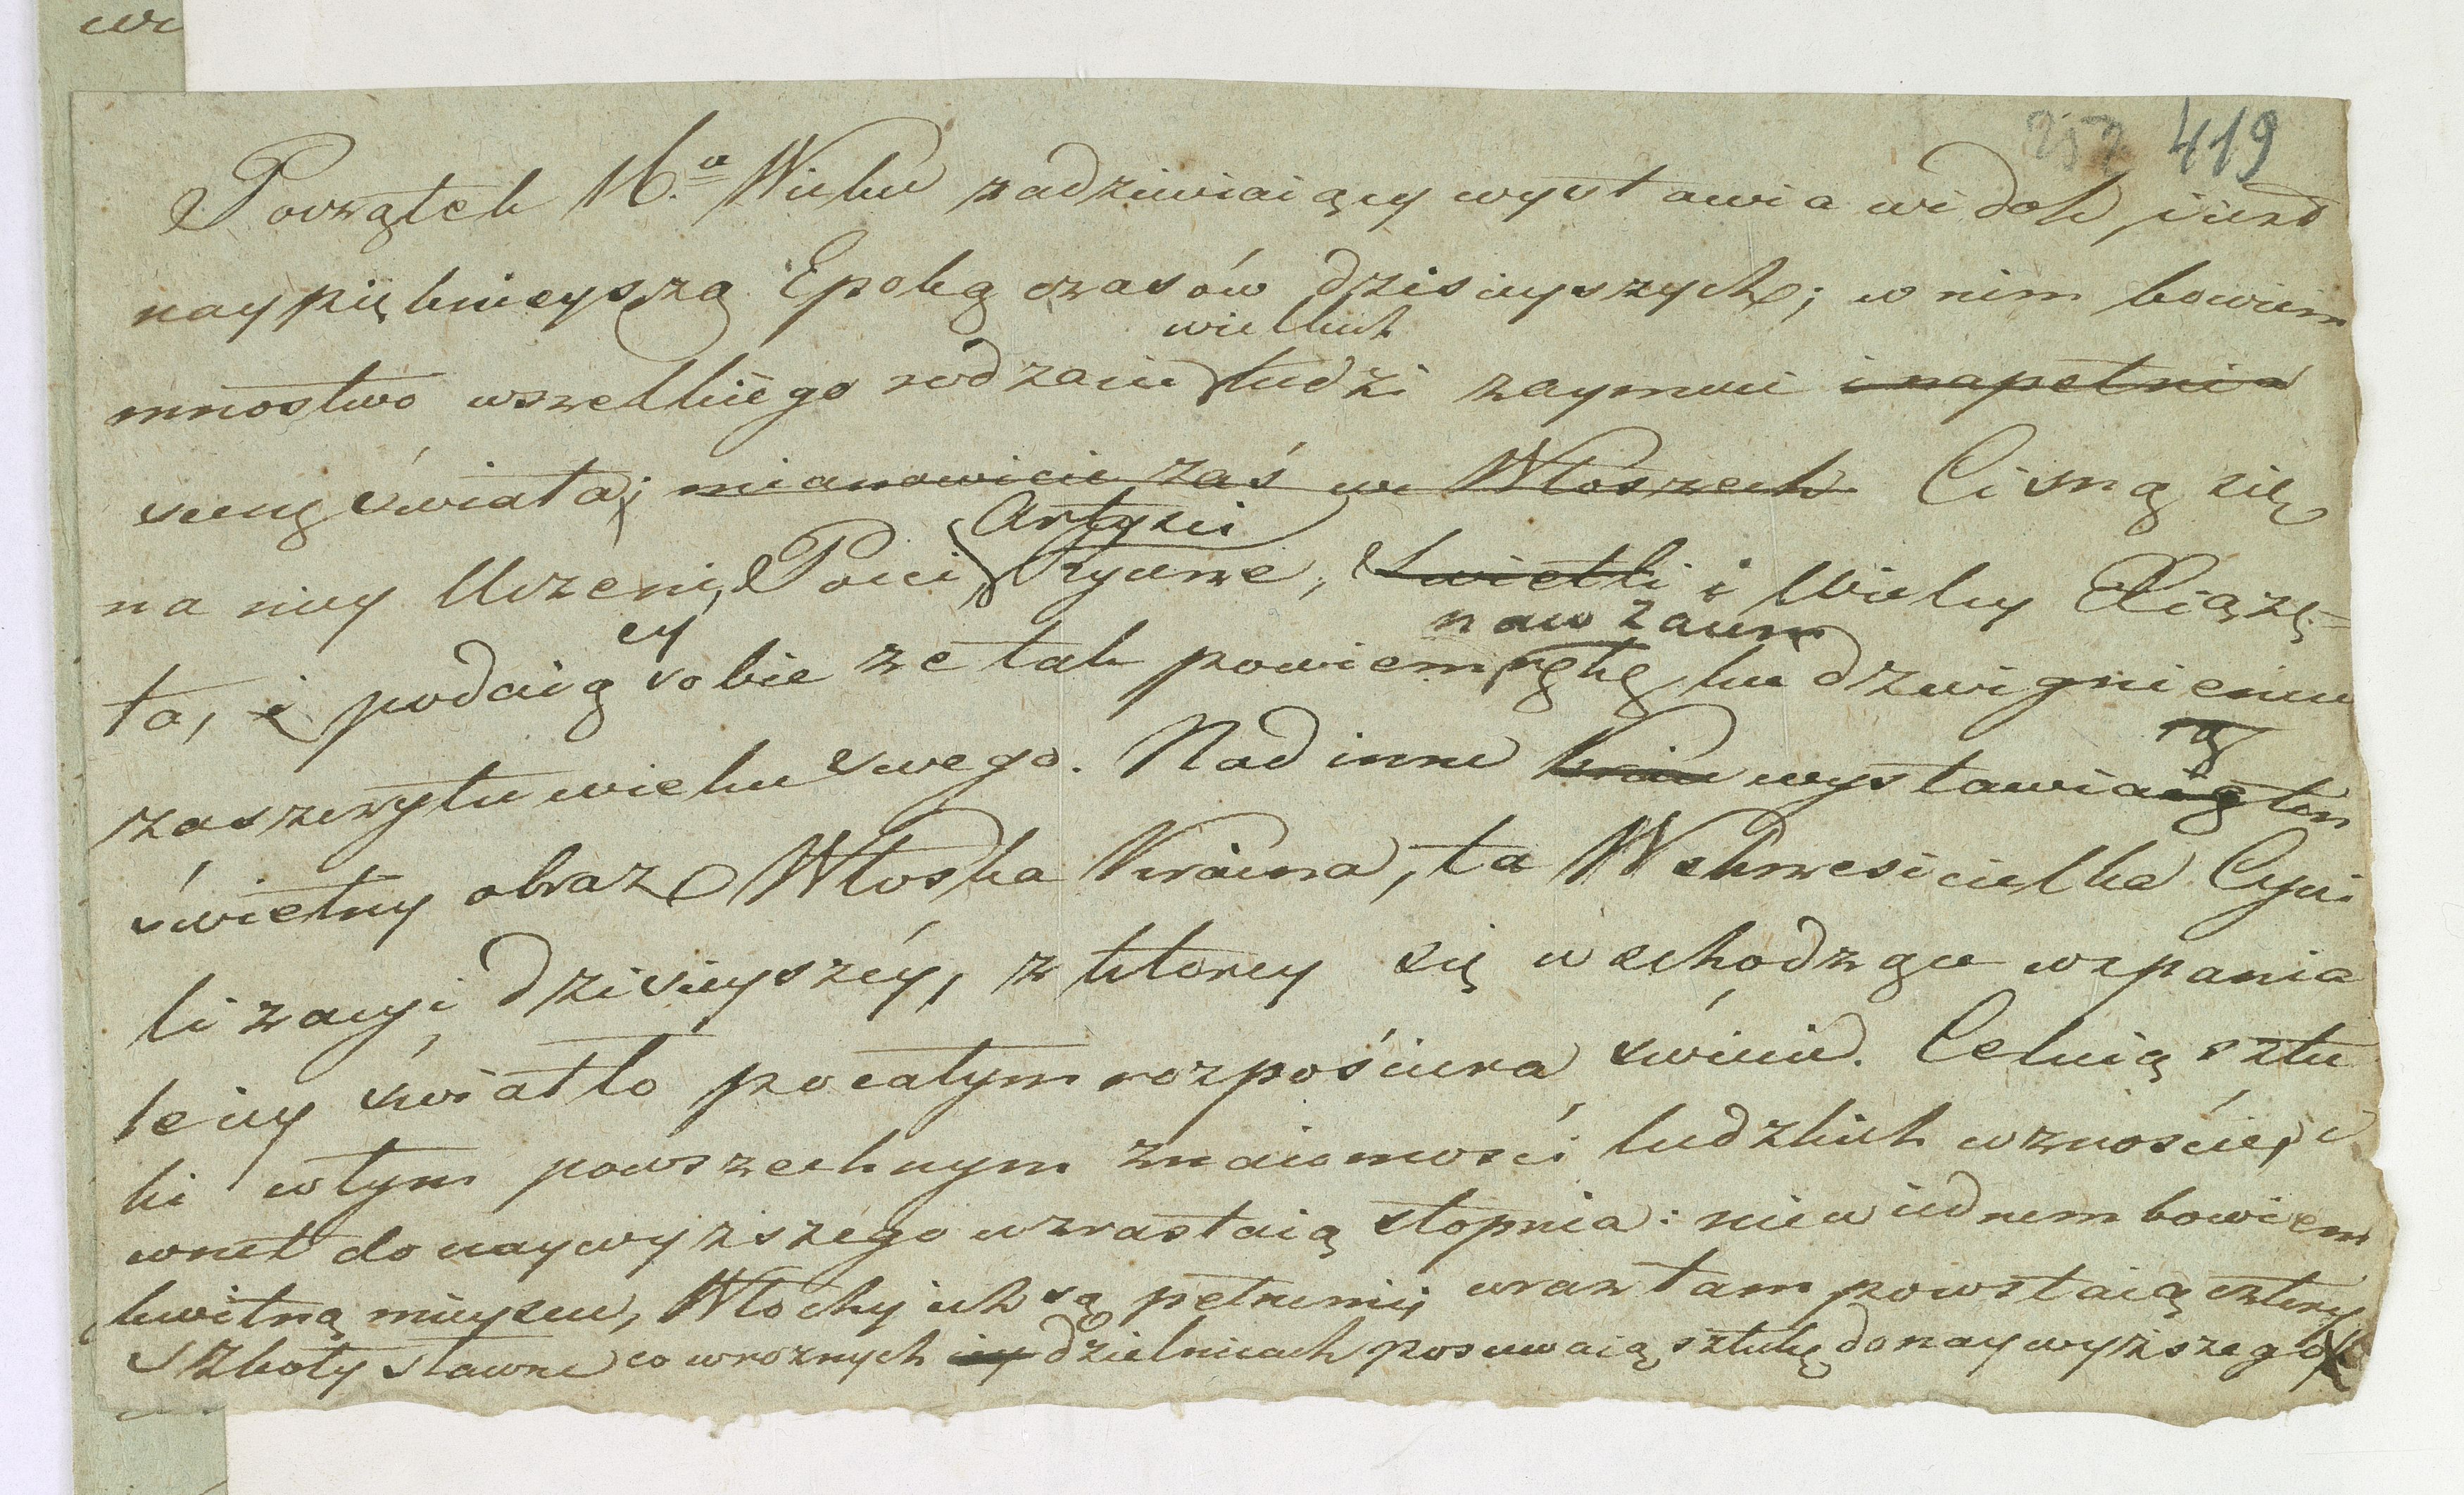 we
252 419
Początek 16.a Wieku zadziwiaiący wystawia widok, iest
naypięknieyszą Epoką czasów dzisieyszych; w nim bowiem
wielkich
mnostwo wszelkiego rodzaiu ludzi zaymuie i napełnia
scenę świata; mianowicie zaś we Włoszech Cisną się
Artyści
na niey Uczeni, Poeci, Rycerze, Świetli i Wielcy Xiążę-
cy nawzaiem
ta, i podaią sobie że tak powiem rękę ku dzwignieniu
zaszczytu wieku swego. Nad inne kraie wystawiaią ten
świetny obraz Włoska Kraina, ta Wskrzesicielka Cywi
lizacyi dzisieyszéy, z ktorey się wschodzące wspania
le iey światło po całym rozpościera świecie. Celuią sztu
ki w tym powszechnym znaiomości ludzkich wznoście, i
wnet do naywyższego wzrastaią stopnia: nie w iednem bowiem
kwitną mieyscu, Włochy ich są pełne mi; wraz tam powstaią cztery
Szkoły sławne co w roznych iey dzielnicach posuwaią sztukę do naywyższego